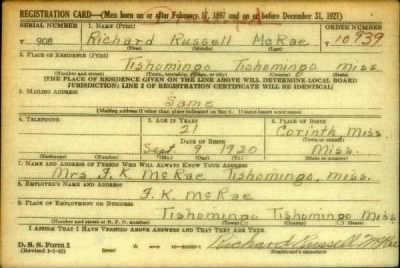 REGISTRATION CARD—(Men born on or after February 17, 1897 and on or before December 31, 1921)
SERIAL NUMBER 1. NAME (Print) ORDER NUMBER
T 908 Richard Russell McRae T10939
(First) (Middle) (Last)
2. PLACE OF RESIDENCE (Print)
Tishomingo Tishomingo Miss.
(Number and street) (Town, township, village, or city) (County) (State)
[THE PLACE OF RESIDENCE GIVEN ON THE LINE ABOVE WILL DETERMINE LOCAL BOARD
JURISDICTION; LINE 2 OF REGISTRATION CERTIFICATE WILL BE IDENTICAL]
3. MAILING ADDRESS
Same
(Mailing address if other than place indicated on line 2. If same insert word same)
4. TELEPHONE 5. AGE IN YEARS 6. PLACE OF BIRTH
21 Corinth Miss.
DATE OF BIRTH (Town or county)
Sept. 9 1920 Miss.
(Exchange) (Number) (Mo.) (Day) (Yr.) (State or country)
7. NAME AND ADDRESS OF PERSON WHO WILL ALWAYS KNOW YOUR ADDRESS
Mrs F. K. McRae Tishomingo, Miss.
8. EMPLOYER'S NAME AND ADDRESS
F. K. McRae
9. PLACE OF EMPLOYMENT OR BUSINESS
Tishomingo Tishomingo Miss
(Number and street or R. F. D. number) (Town) (County) (State)
I AFFIRM THAT I HAVE VERIFIED ABOVE ANSWERS AND THAT THEY ARE TRUE.
D. S. S. Form 1 Richard Russell McRae
(Registrant's signature)